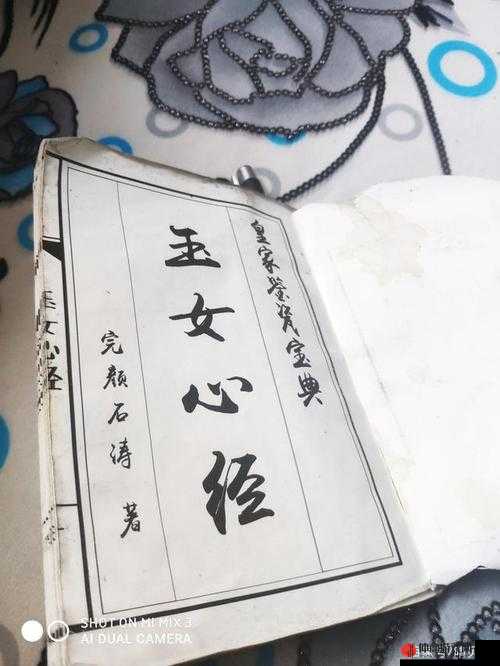 皇家鉴瓷宝典
玉女心经
完颜石涛 著
玉女心经
SHOT ON MI MIX 3
AI DUAL CAMERA